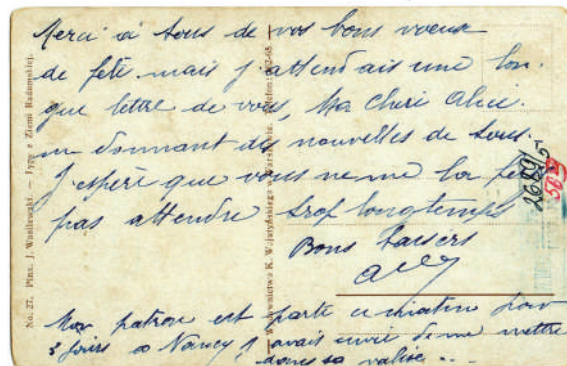 Merci à tous de vos bons voeux
de fête mais j'attendais une lon-
gue lettre de vous, Ma Cheri Alice.
en donnant des nouvelles de tous.
J'espère que vous ne me la
pas attendre trop longtemps
Bons Baisers
Mon patron est parti ce matin pour
3 jours a Nancy j'avais envie de me mettre
dans sa valise ..
No. 27. Pinx. J. Wasilewski. — Typy z Ziemi Radomskiej.
Wydawnictwo K. Wojutyńskiego w Warszawie. Telefon: